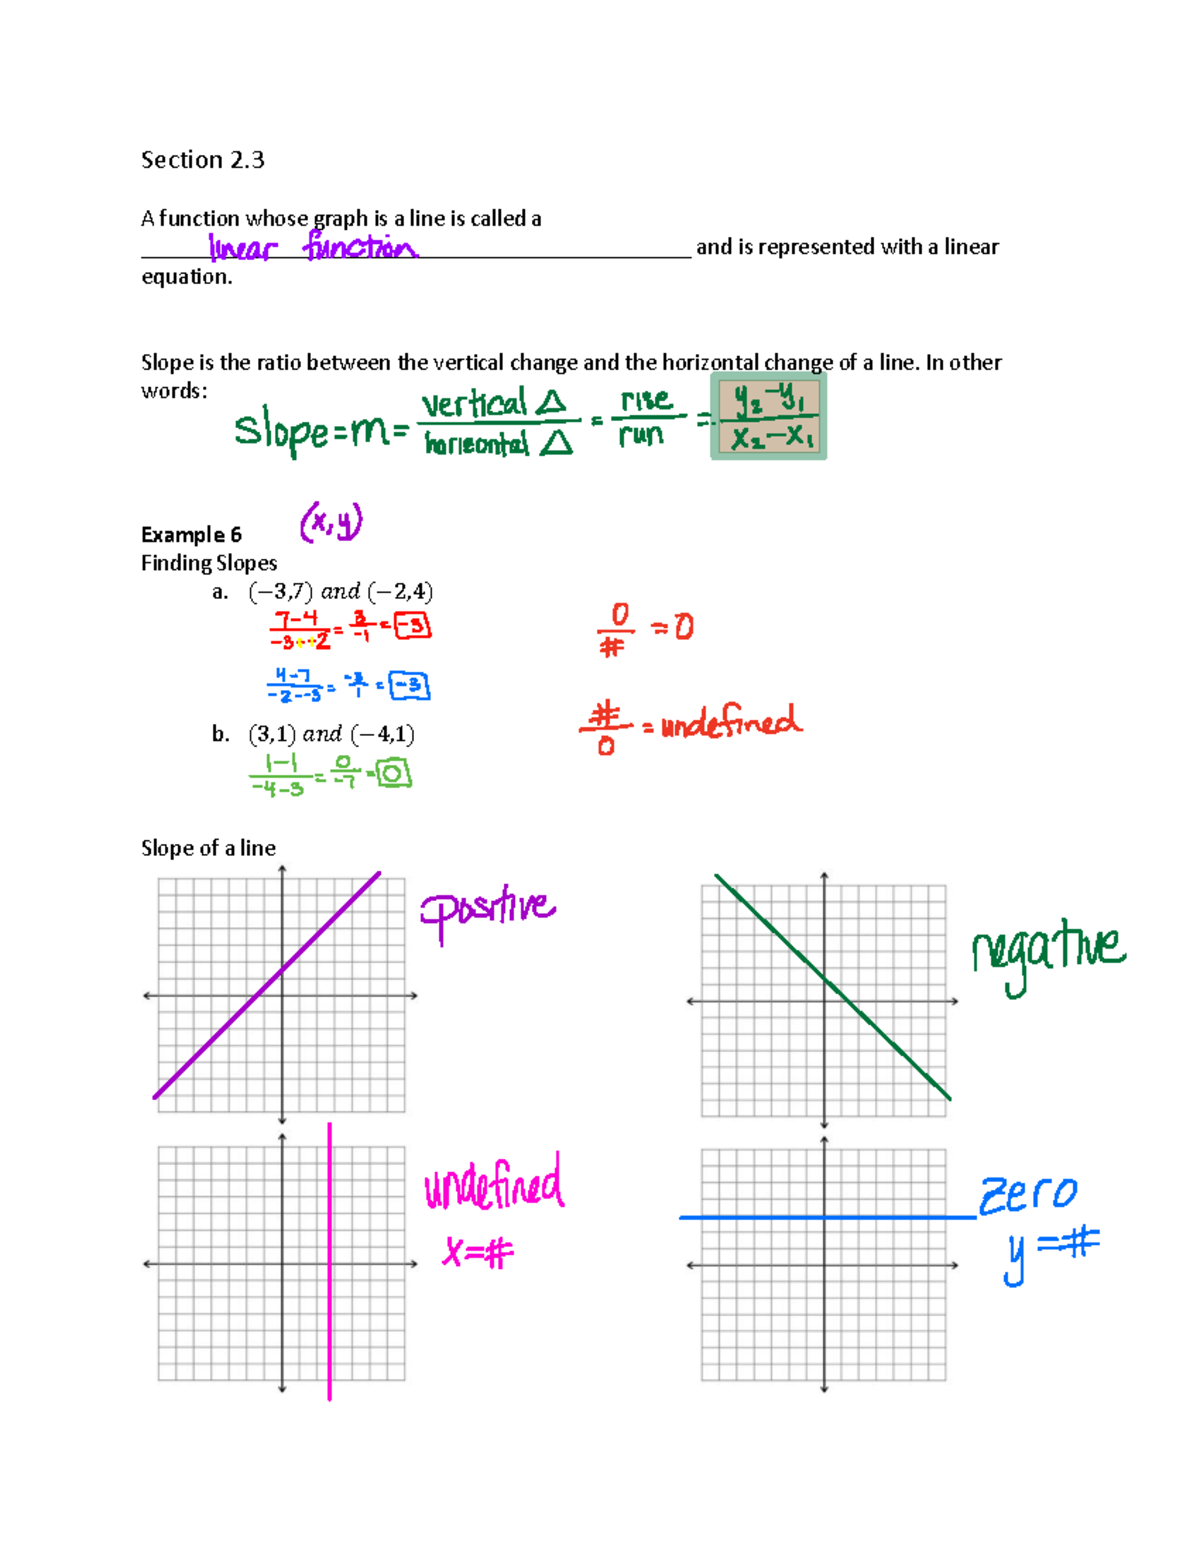 Section 2.3
A function whose graph is a line is called a
linear function and is represented with a linear
equation.
Slope is the ratio between the vertical change and the horizontal change of a line. In other
words:
slope = m = vertical Δ / horizontal Δ = rise / run = y₂-y₁ / x₂-x₁
Example 6 (x,y)
Finding Slopes
a. (−3,7) and (−2,4)
7-4 / -3-+2 = 3 / -1 = -3
0 / # = 0
4-7 / -2--3 = -3 / 1 = -3
# / 0 = undefined
b. (3,1) and (−4,1)
1-1 / -4-3 = 0 / -7 = 0
Slope of a line
positive
negative
undefined
x=#
zero
y=#